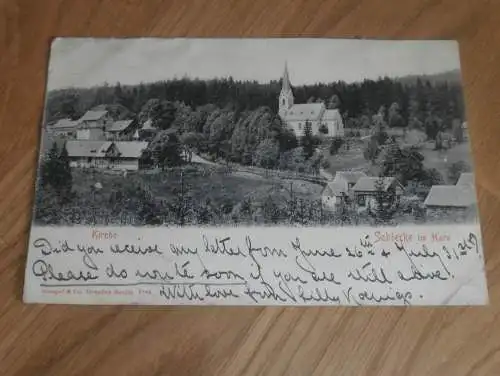 Kirche
Schierke im Harz
Did you receive my letter from June 26th & July 3/
Please do write soon if you are still alive!
With love from Lilly Koenigs
Stengel & Co. Dresden-Berlin